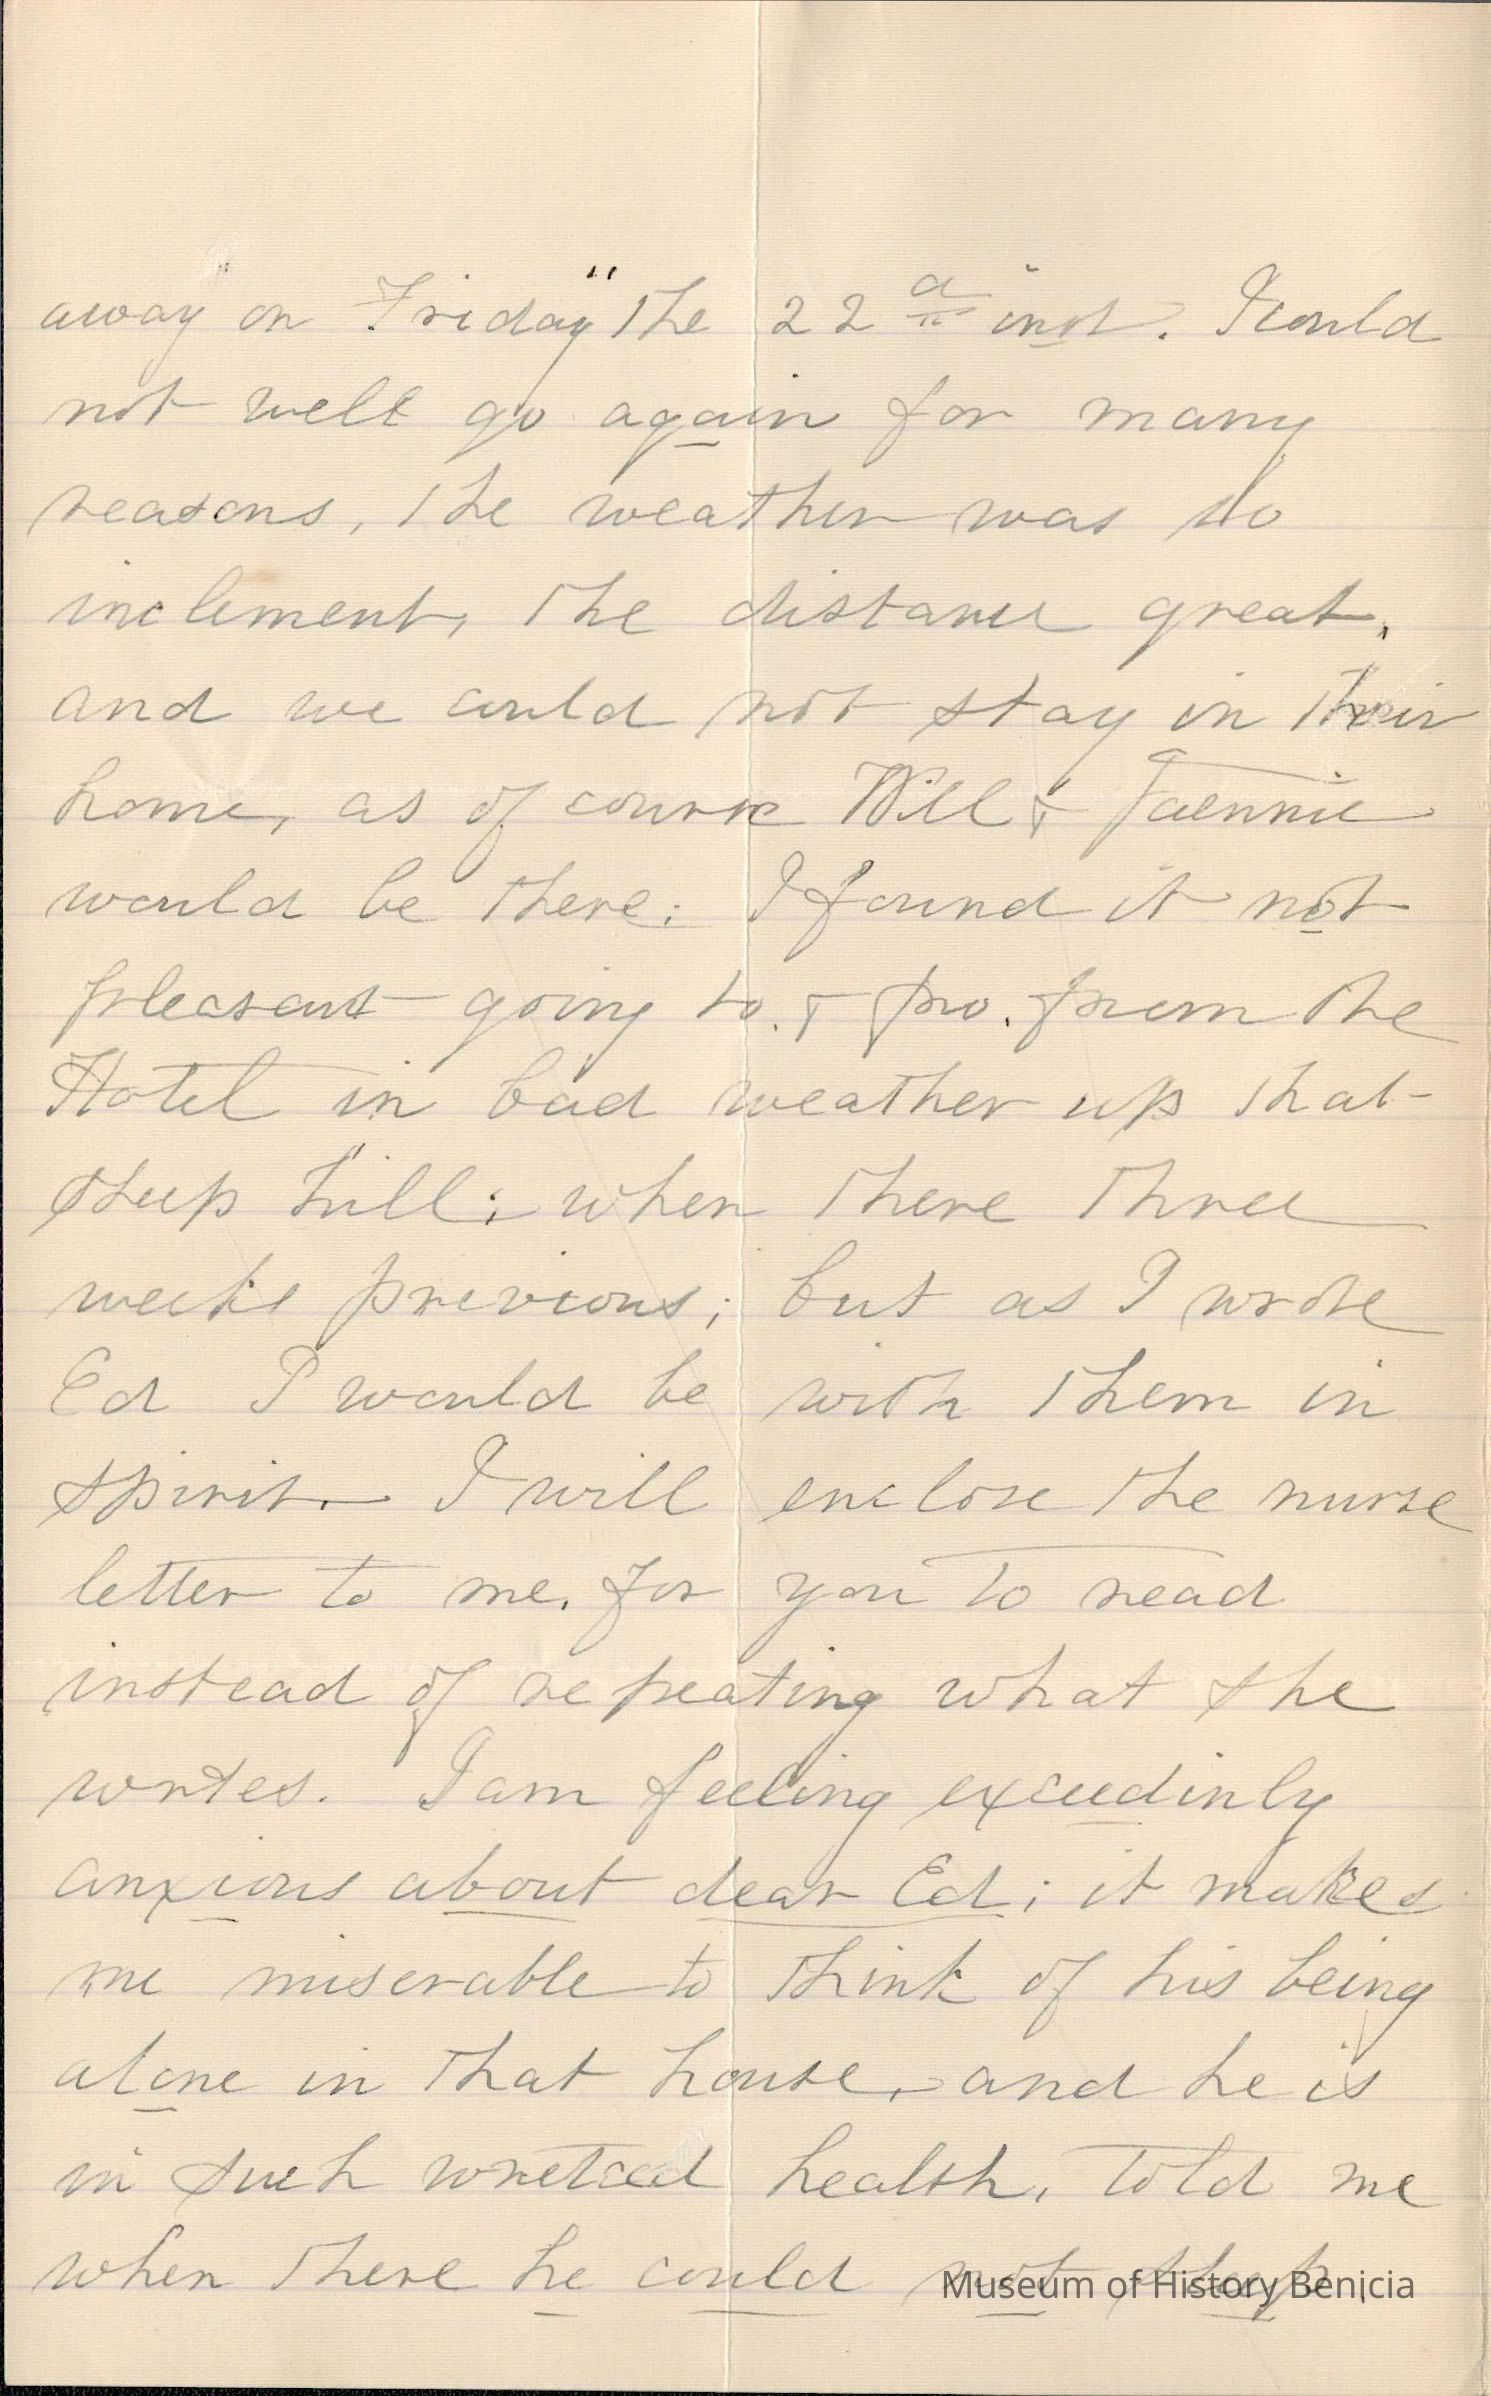 away "on Friday" the 22d inst. I could
not well go again for many
reasons, the weather was so
inclement, the distance great,
and we could not stay in their
home, as of course Will & Fannie
would be there: I found it not
pleasant going to. & fro. from the
Hotel in bad weather up that
steep hill; when there three
weeks previous; but as I wrote
Ed I would be with them in
spirit. I will enclose the nurse
letter to me, for you to read
instead of repeating what she
writes. I am feeling exceedinly
anxious about dear Ed; it makes
me miserable to think of his being
alone in that house, and he is
in such wretced health, told me
when there he could not sleep,
Museum of History Benicia